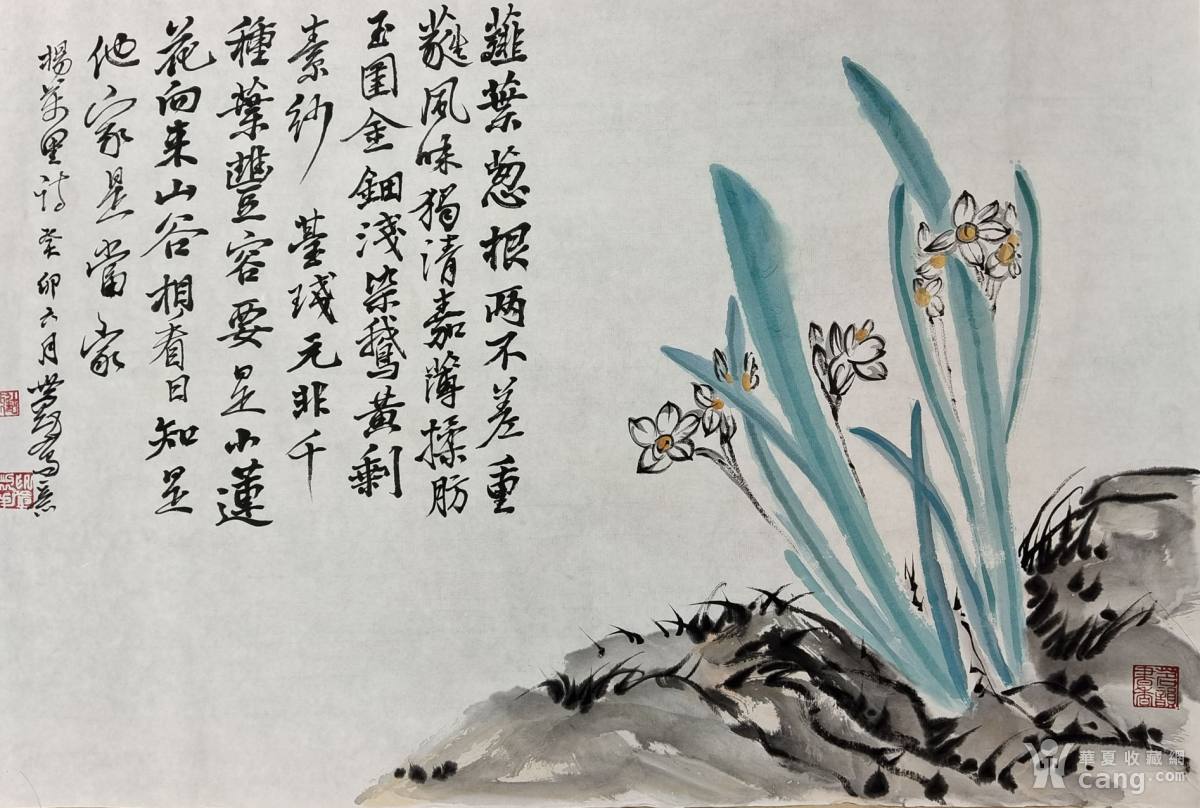 薤葉蔥根两不差重
蕤風味獨清嘉薄揉肪
玉圍金鈿淺染鵝黄剩
素紗 臺琖元非千
種葉豐容要是小蓮
花向来山谷相看日知是
他家是當家
楊萬里詩 癸卯六月 寫意
華夏收藏網
cang.com